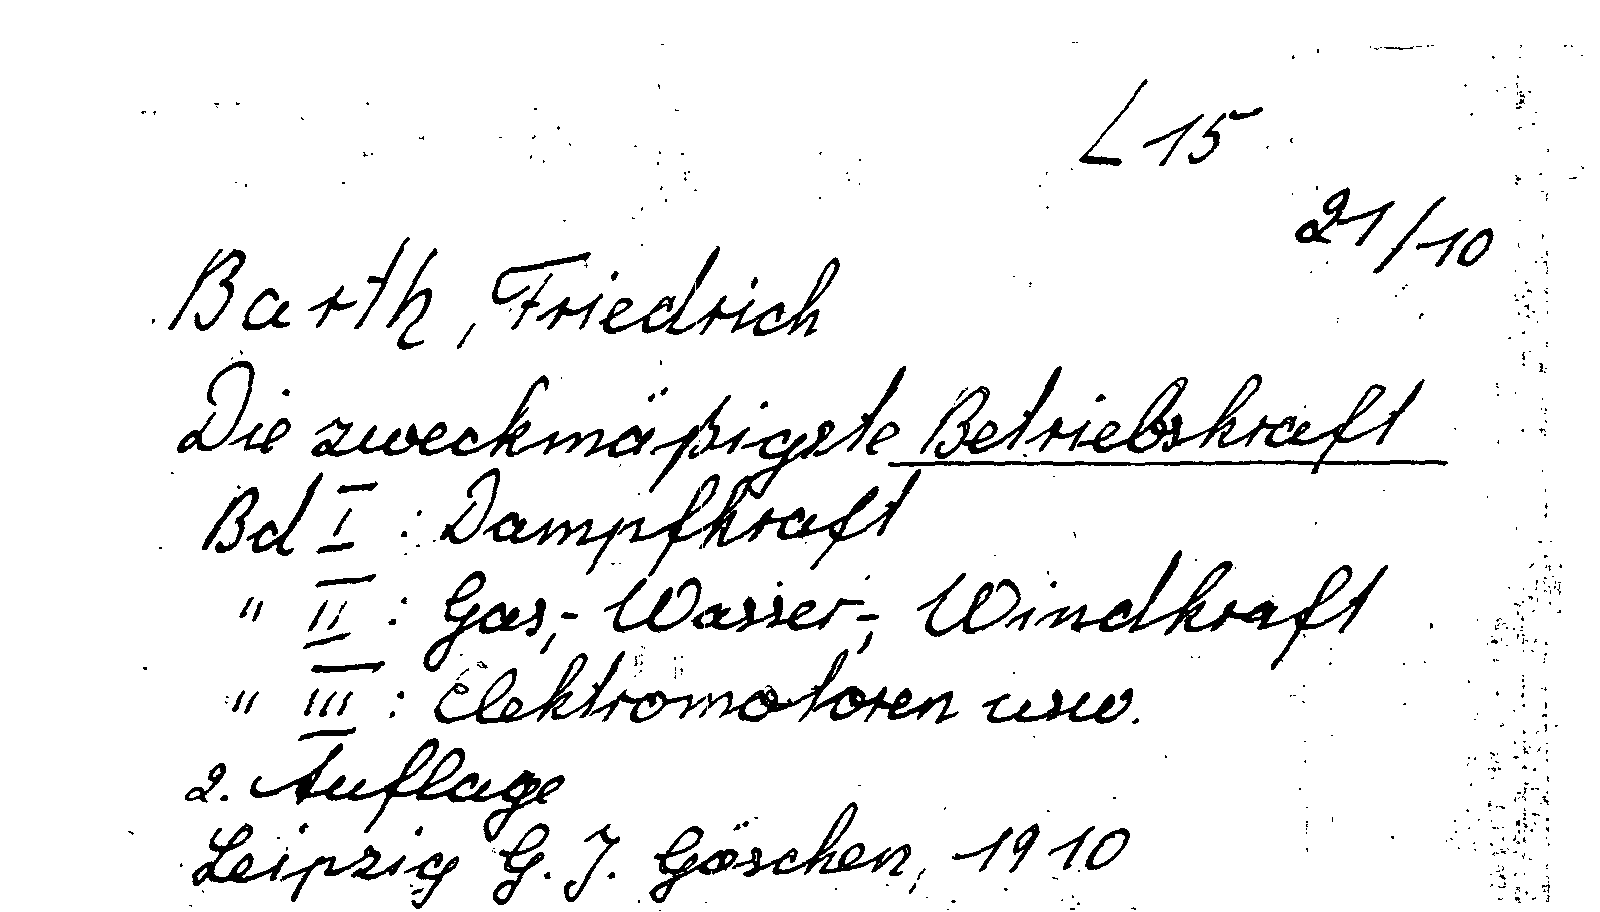 L 15
21/10
Barth, Friedrich
Die zweckmäßigste Betriebskraft
Bd I : Dampfkraft
" II : Gas,- Wasser-, Windkraft
" III : Elektromotoren usw.
2. Auflage
Leipzig G. J. Göschen, 1910